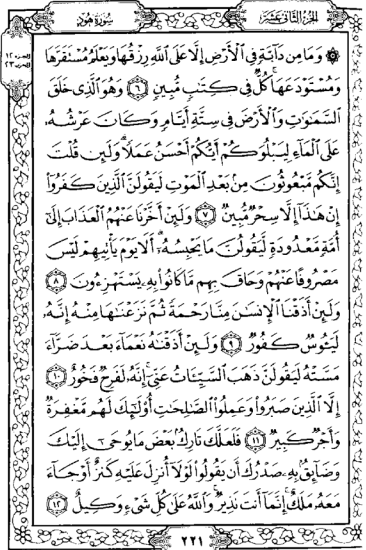 الجزء الثاني عشر
سورة هود
۞ وَمَا مِن دَآبَّةٍ فِي الْأَرْضِ إِلَّا عَلَى اللَّهِ رِزْقُهَا وَيَعْلَمُ مُسْتَقَرَّهَا
وَمُسْتَوْدَعَهَا كُلٌّ فِي كِتَٰبٍ مُّبِينٍ ۝٦ وَهُوَ الَّذِي خَلَقَ
السَّمَٰوَٰتِ وَالْأَرْضَ فِي سِتَّةِ أَيَّامٍ وَكَانَ عَرْشُهُۥ
عَلَى الْمَآءِ لِيَبْلُوَكُمْ أَيُّكُمْ أَحْسَنُ عَمَلًا وَلَئِن قُلْتَ
إِنَّكُم مَّبْعُوثُونَ مِنۢ بَعْدِ الْمَوْتِ لَيَقُولَنَّ الَّذِينَ كَفَرُوٓا
إِنْ هَٰذَآ إِلَّا سِحْرٌ مُّبِينٌ ۝٧ وَلَئِنْ أَخَّرْنَا عَنْهُمُ الْعَذَابَ إِلَىٰٓ
أُمَّةٍ مَّعْدُودَةٍ لَّيَقُولُنَّ مَا يَحْبِسُهُۥٓ أَلَا يَوْمَ يَأْتِيهِمْ لَيْسَ
مَصْرُوفًا عَنْهُمْ وَحَاقَ بِهِم مَّا كَانُوا بِهِۦ يَسْتَهْزِءُونَ ۝٨
وَلَئِنْ أَذَقْنَا الْإِنسَٰنَ مِنَّا رَحْمَةً ثُمَّ نَزَعْنَٰهَا مِنْهُ إِنَّهُۥ
لَيَـُٔوسٌ كَفُورٌ ۝٩ وَلَئِنْ أَذَقْنَٰهُ نَعْمَآءَ بَعْدَ ضَرَّآءَ
مَسَّتْهُ لَيَقُولَنَّ ذَهَبَ السَّيِّـَٔاتُ عَنِّيٓ إِنَّهُۥ لَفَرِحٌ فَخُورٌ ۝١٠
إِلَّا الَّذِينَ صَبَرُوا وَعَمِلُوا الصَّٰلِحَٰتِ أُولَٰٓئِكَ لَهُم مَّغْفِرَةٌ
وَأَجْرٌ كَبِيرٌ ۝١١ فَلَعَلَّكَ تَارِكٌۢ بَعْضَ مَا يُوحَىٰٓ إِلَيْكَ
وَضَآئِقٌۢ بِهِۦ صَدْرُكَ أَن يَقُولُوا لَوْلَآ أُنزِلَ عَلَيْهِ كَنزٌ أَوْ جَآءَ
مَعَهُۥ مَلَكٌ إِنَّمَآ أَنتَ نَذِيرٌ وَاللَّهُ عَلَىٰ كُلِّ شَيْءٍ وَكِيلٌ ۝١٢
٢٢١